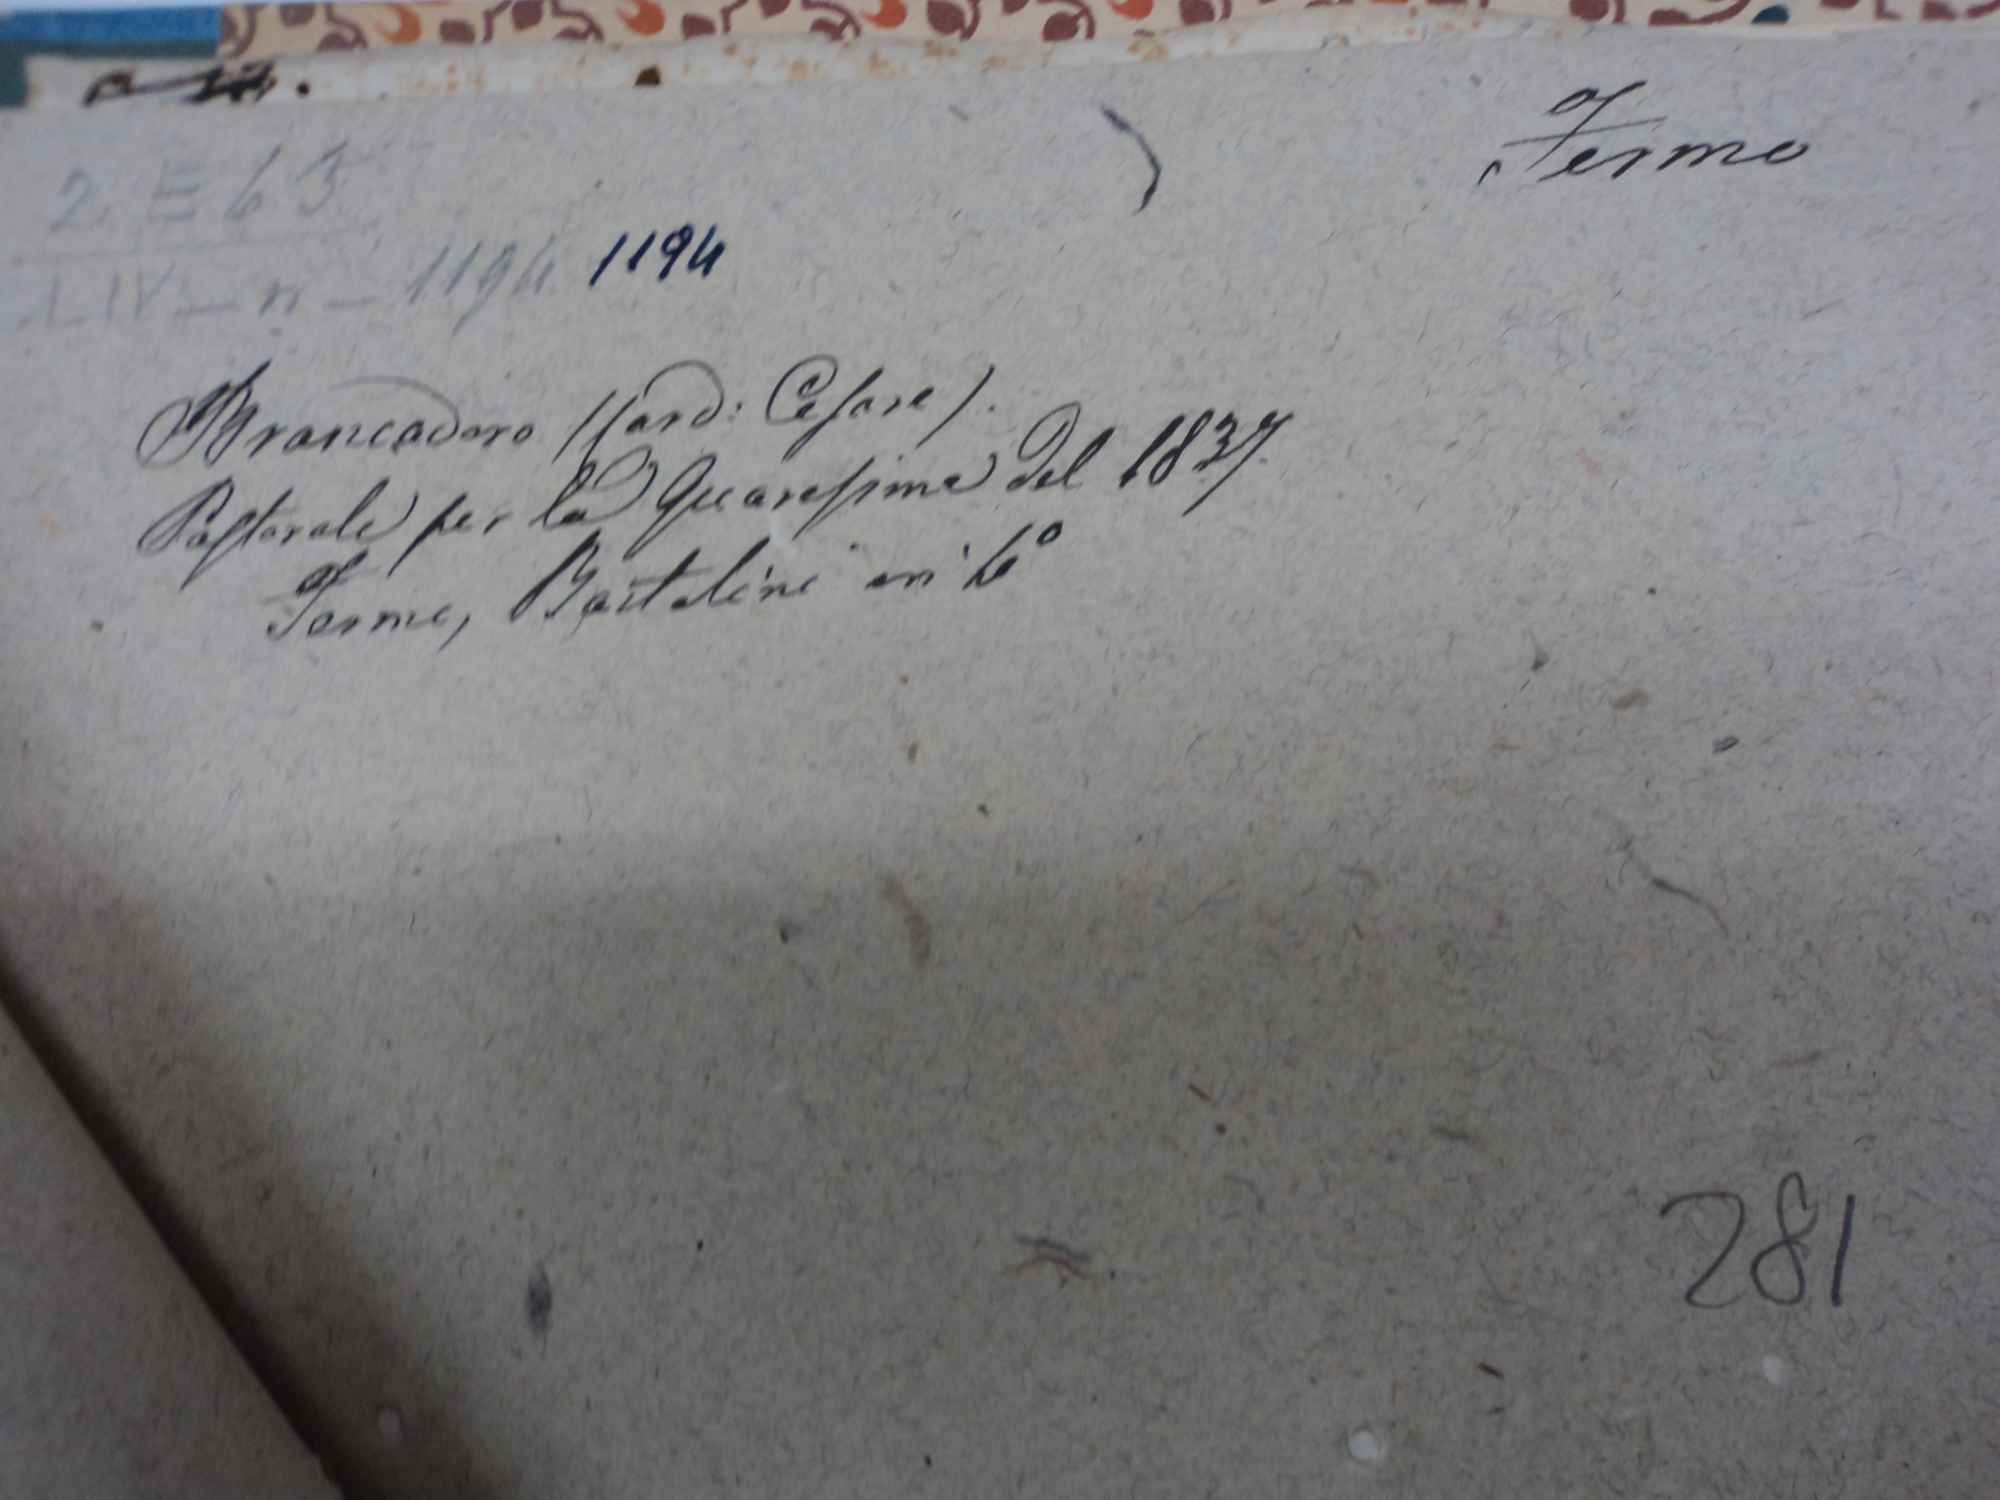 Fermo
2 E 63
LIV - n - 1194 1194
Brancadoro (Card: Cesare).
Pastorale per la Quaresima del 1837.
Fermo, Bartolini in 4°
281